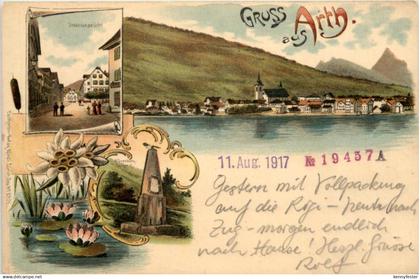 Gruss
aus
Arth.
11. Aug. 1917 № 19437A
Gestern mit Vollpackung
auf die Rigi - heute nach
Zug - morgen endlich
nach Hause! Herzl. Grüsse
Rolf